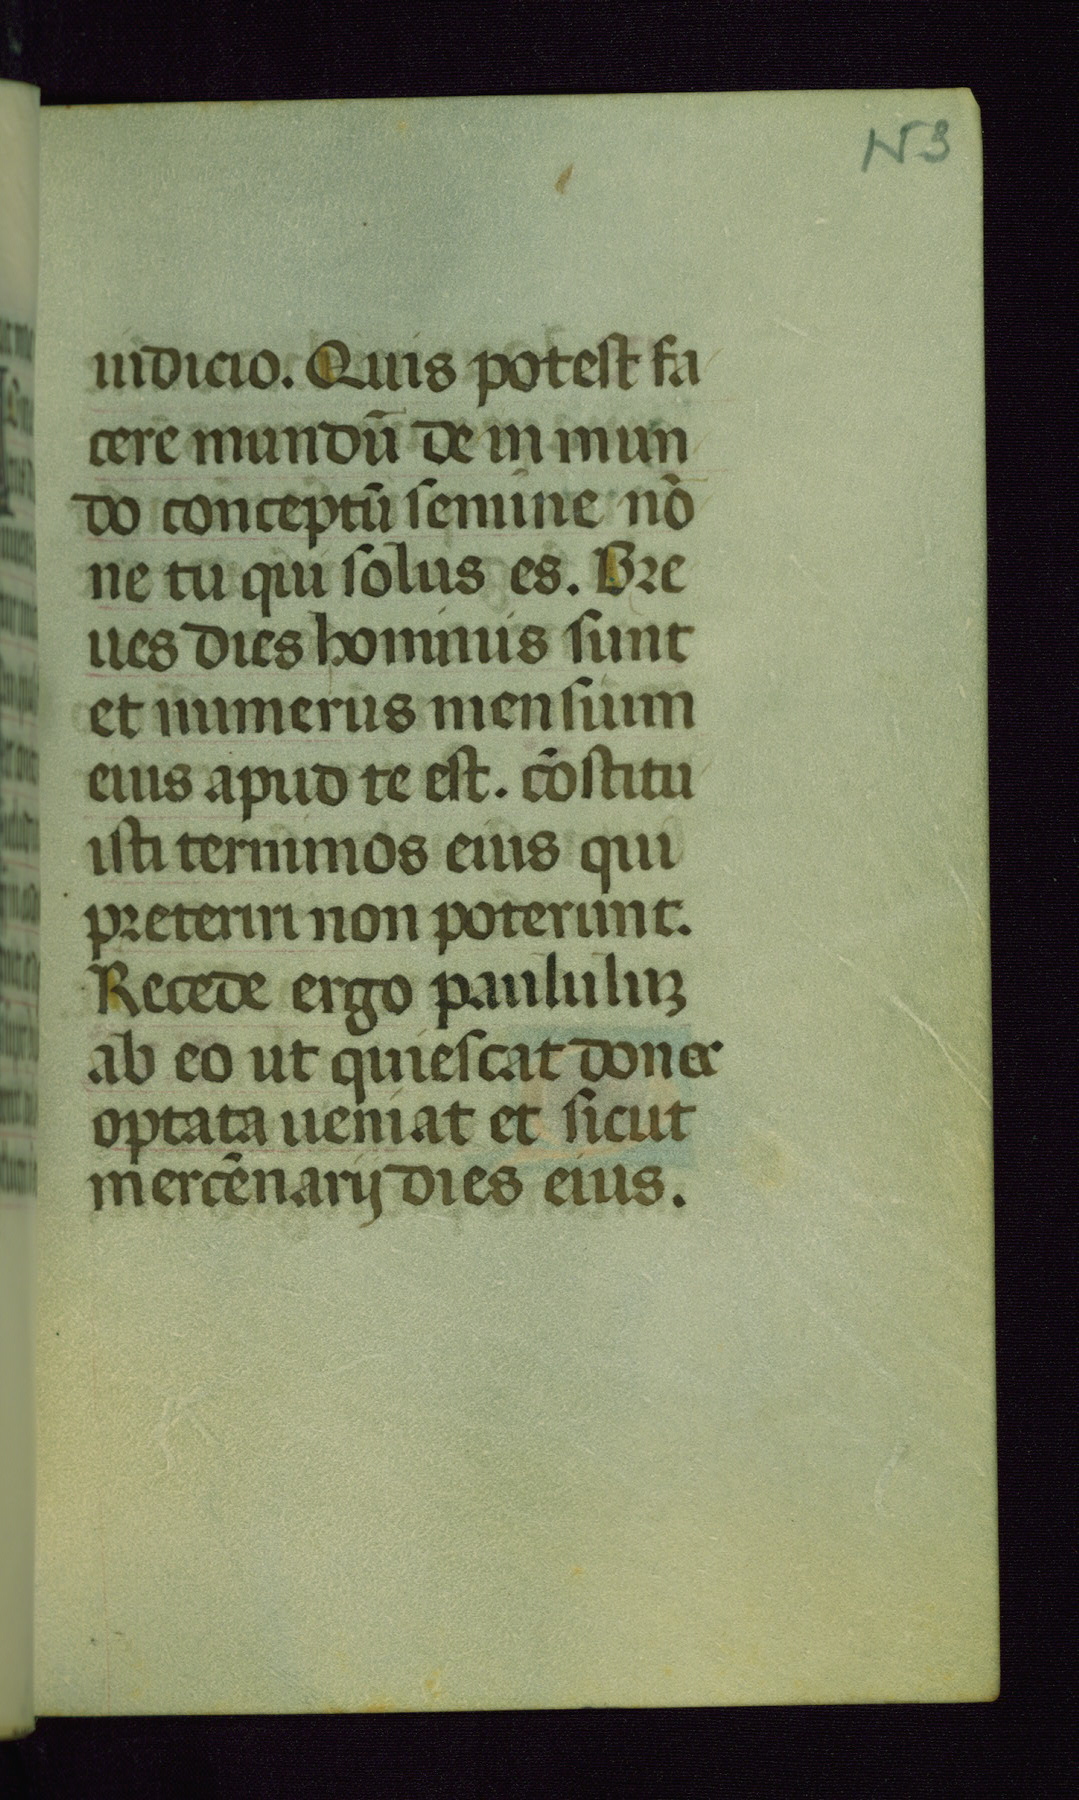 153
iudicio. Quis potest fa
cere mundū de in mun
do conceptū semine nō
ne tu qui solus es. Bre
ues dies hominis sunt
et numerus mensium
eius apud te est. cōstitu
isti terminos eius qui
preteriri non poterunt.
Recede ergo paululuꝫ
ab eo ut quiescat donec
optata ueniat et sicut
mercēnarij dies eius.